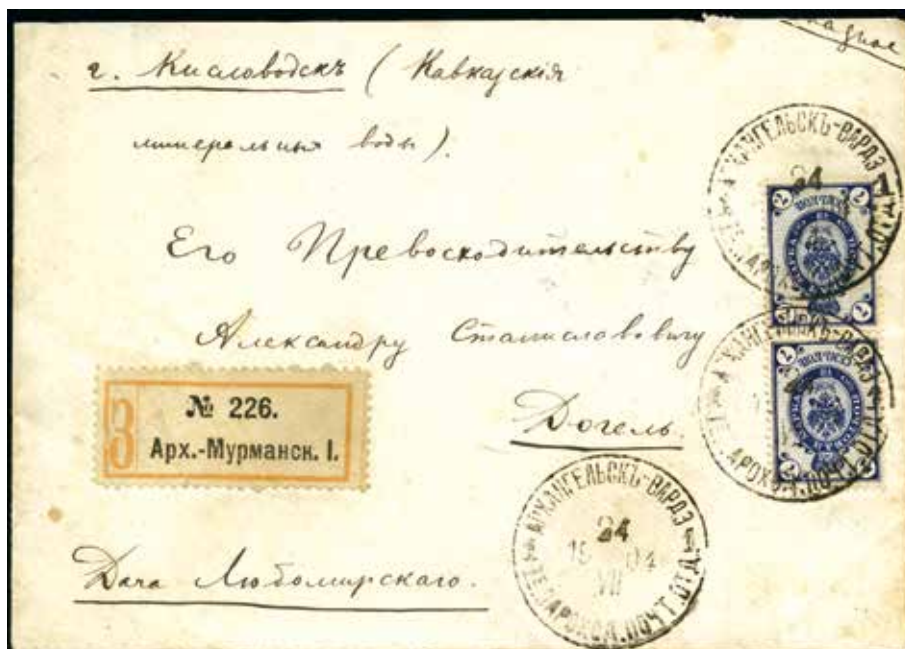 г. Кисловодскъ (Кавказскія
минеральныя воды).
Его Превосходительству
Александру Станиславовичу
Догель.
№ 226.
З Арх.-Мурманск. I.
Дача Любомирскаго.
АРХАНГЕЛЬСКЪ-ВАРДЭ
24
VII
ПАРОХОД.ПОЧТ.ОТД.
АРХАНГЕЛЬСКЪ-ВАРДЭ
24
АРХАНГЕЛЬСКЪ-ВАРДЭ
ПАРОХОД.ПОЧТ.ОТД.
7
7
7
7